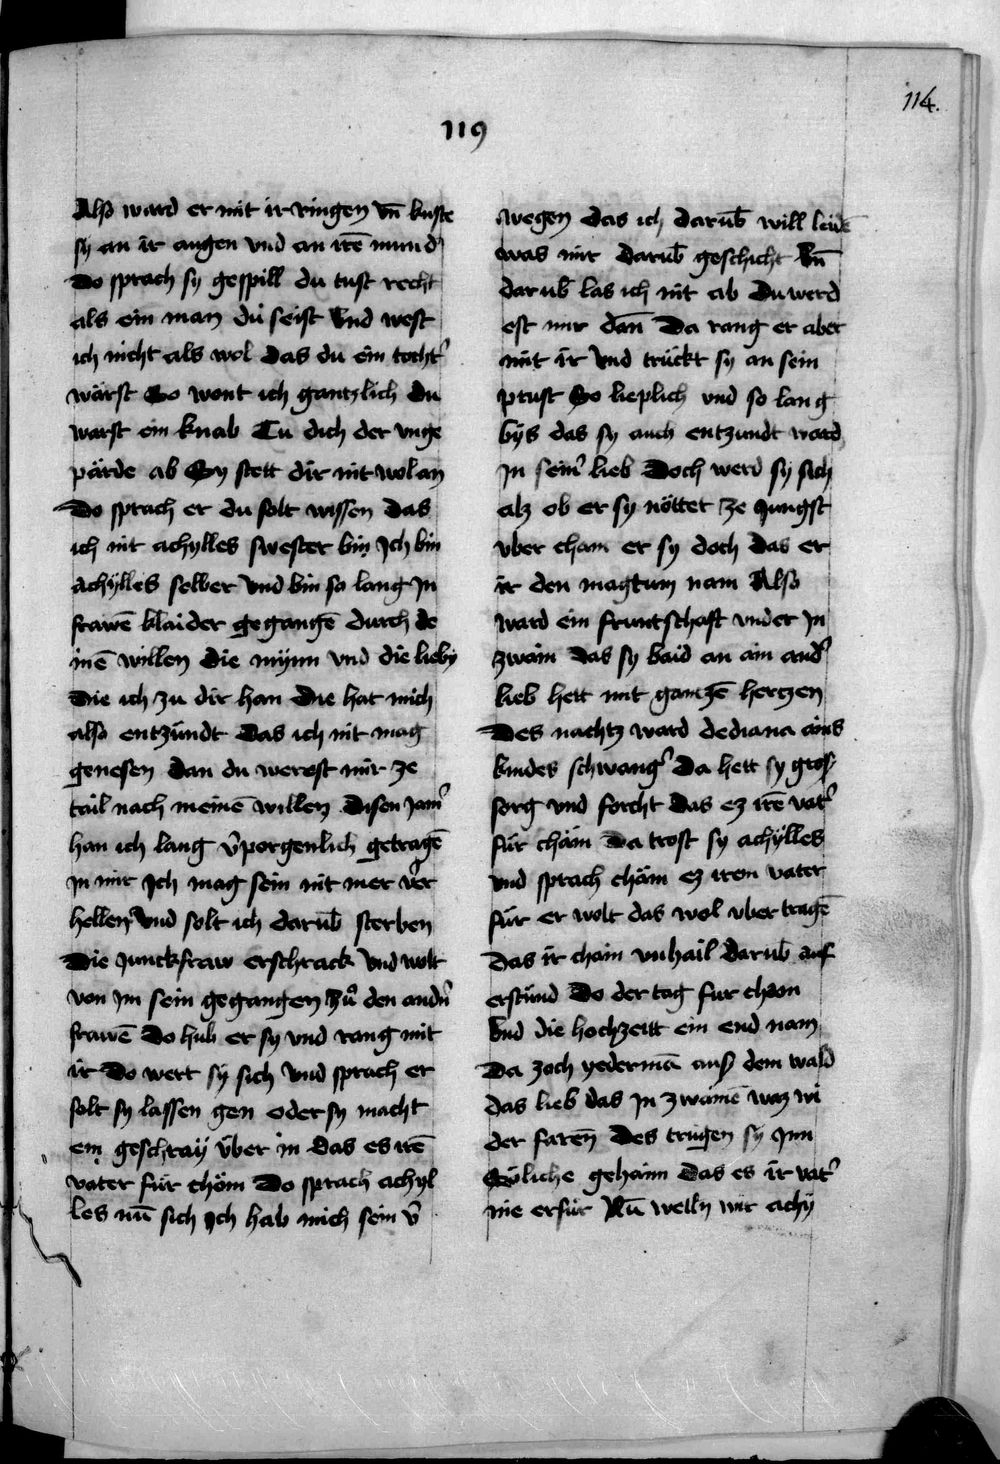 114.
119
Also ward er mit ir ringen vn̄ kuste
sy an ir augen vnd an irē mund
Do sprach sy gespill du tust recht
als ein man du seist Vnd west
ich nicht als wol das du ein tocht'
wärst So wont ich gantzlich du
warst ein knab Tu dich der vnge
pärde ab Sy stett dir nit wol an
Do sprach er du solt wissen das
ich nit achylles swester bin Ich bin
achÿlles selber Vnd bin so lang In
frawē klaider gegangē durch de
inē willen die mÿnn vnd die lieby
die ich zu dir han die hat mich
also entzündt Das ich nit mag
genesen dan du werest mir ze
tail nach meinē willen disen Jam'
han ich lang v̄porgenlich getragē
In mir Ich mag sein nit mer v'er
hellen Vnd solt ich darub̄ sterben
Die Junckfraw erschrack Vnd wolt
von Im sein gegangen zů den andn̄
frawē Do hub er sy vnd rang mit
ir Do wert sÿ sich Vnd sprach er
solt sy lassen gen oder sy macht
ein geschraÿ über in das es irē
vater für chöm Do sprach achyl
les nū sich Ich hab mich sein v̄
wegen das ich darub̄ will leidē
was mir darub̄ geschicht Vn̄
darub̄ las ich nit ab Du werd
est mir dan̄ Da rang er aber
mit ir Vnd trückt sy an sein
prust So lieplich vnd so lang
bÿs das sy auch entzundt ward
In sein' lieb Doch werd sy sich
alz ob er sy nöttet ze Jungst
vber cham er sy doch das er
ir den magtum nam Also
ward ein fruntschaft vnder In
zwain das sy baid an ain and'
lieb hett mit gantzē hertzen
Des nachtz ward dediana ains
kindes schwang' Da hett sy gros
sorg vnd forcht das ez irē vat'
für chäm Da trost sy achÿlles
vnd sprach chäm ez irem vater
für er wolt das wol vber tragē
Das ir chain vnhail darub̄ auf
erstünd Do der tag fur chom
Vnd die hochzeitt ein end nam
Da zoch yedermā aus dem wald
das lieb das In zwainē waz wi
der faren̄ Des trugen sÿ Inn
Göliche gehaim das es ir vat'
nie erfür Nū welln wir achÿ